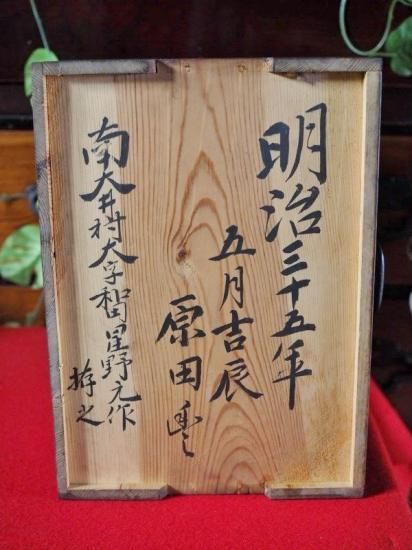 明治三十五年
五月吉辰
原田
南大井村大字和田星野元作
拵之